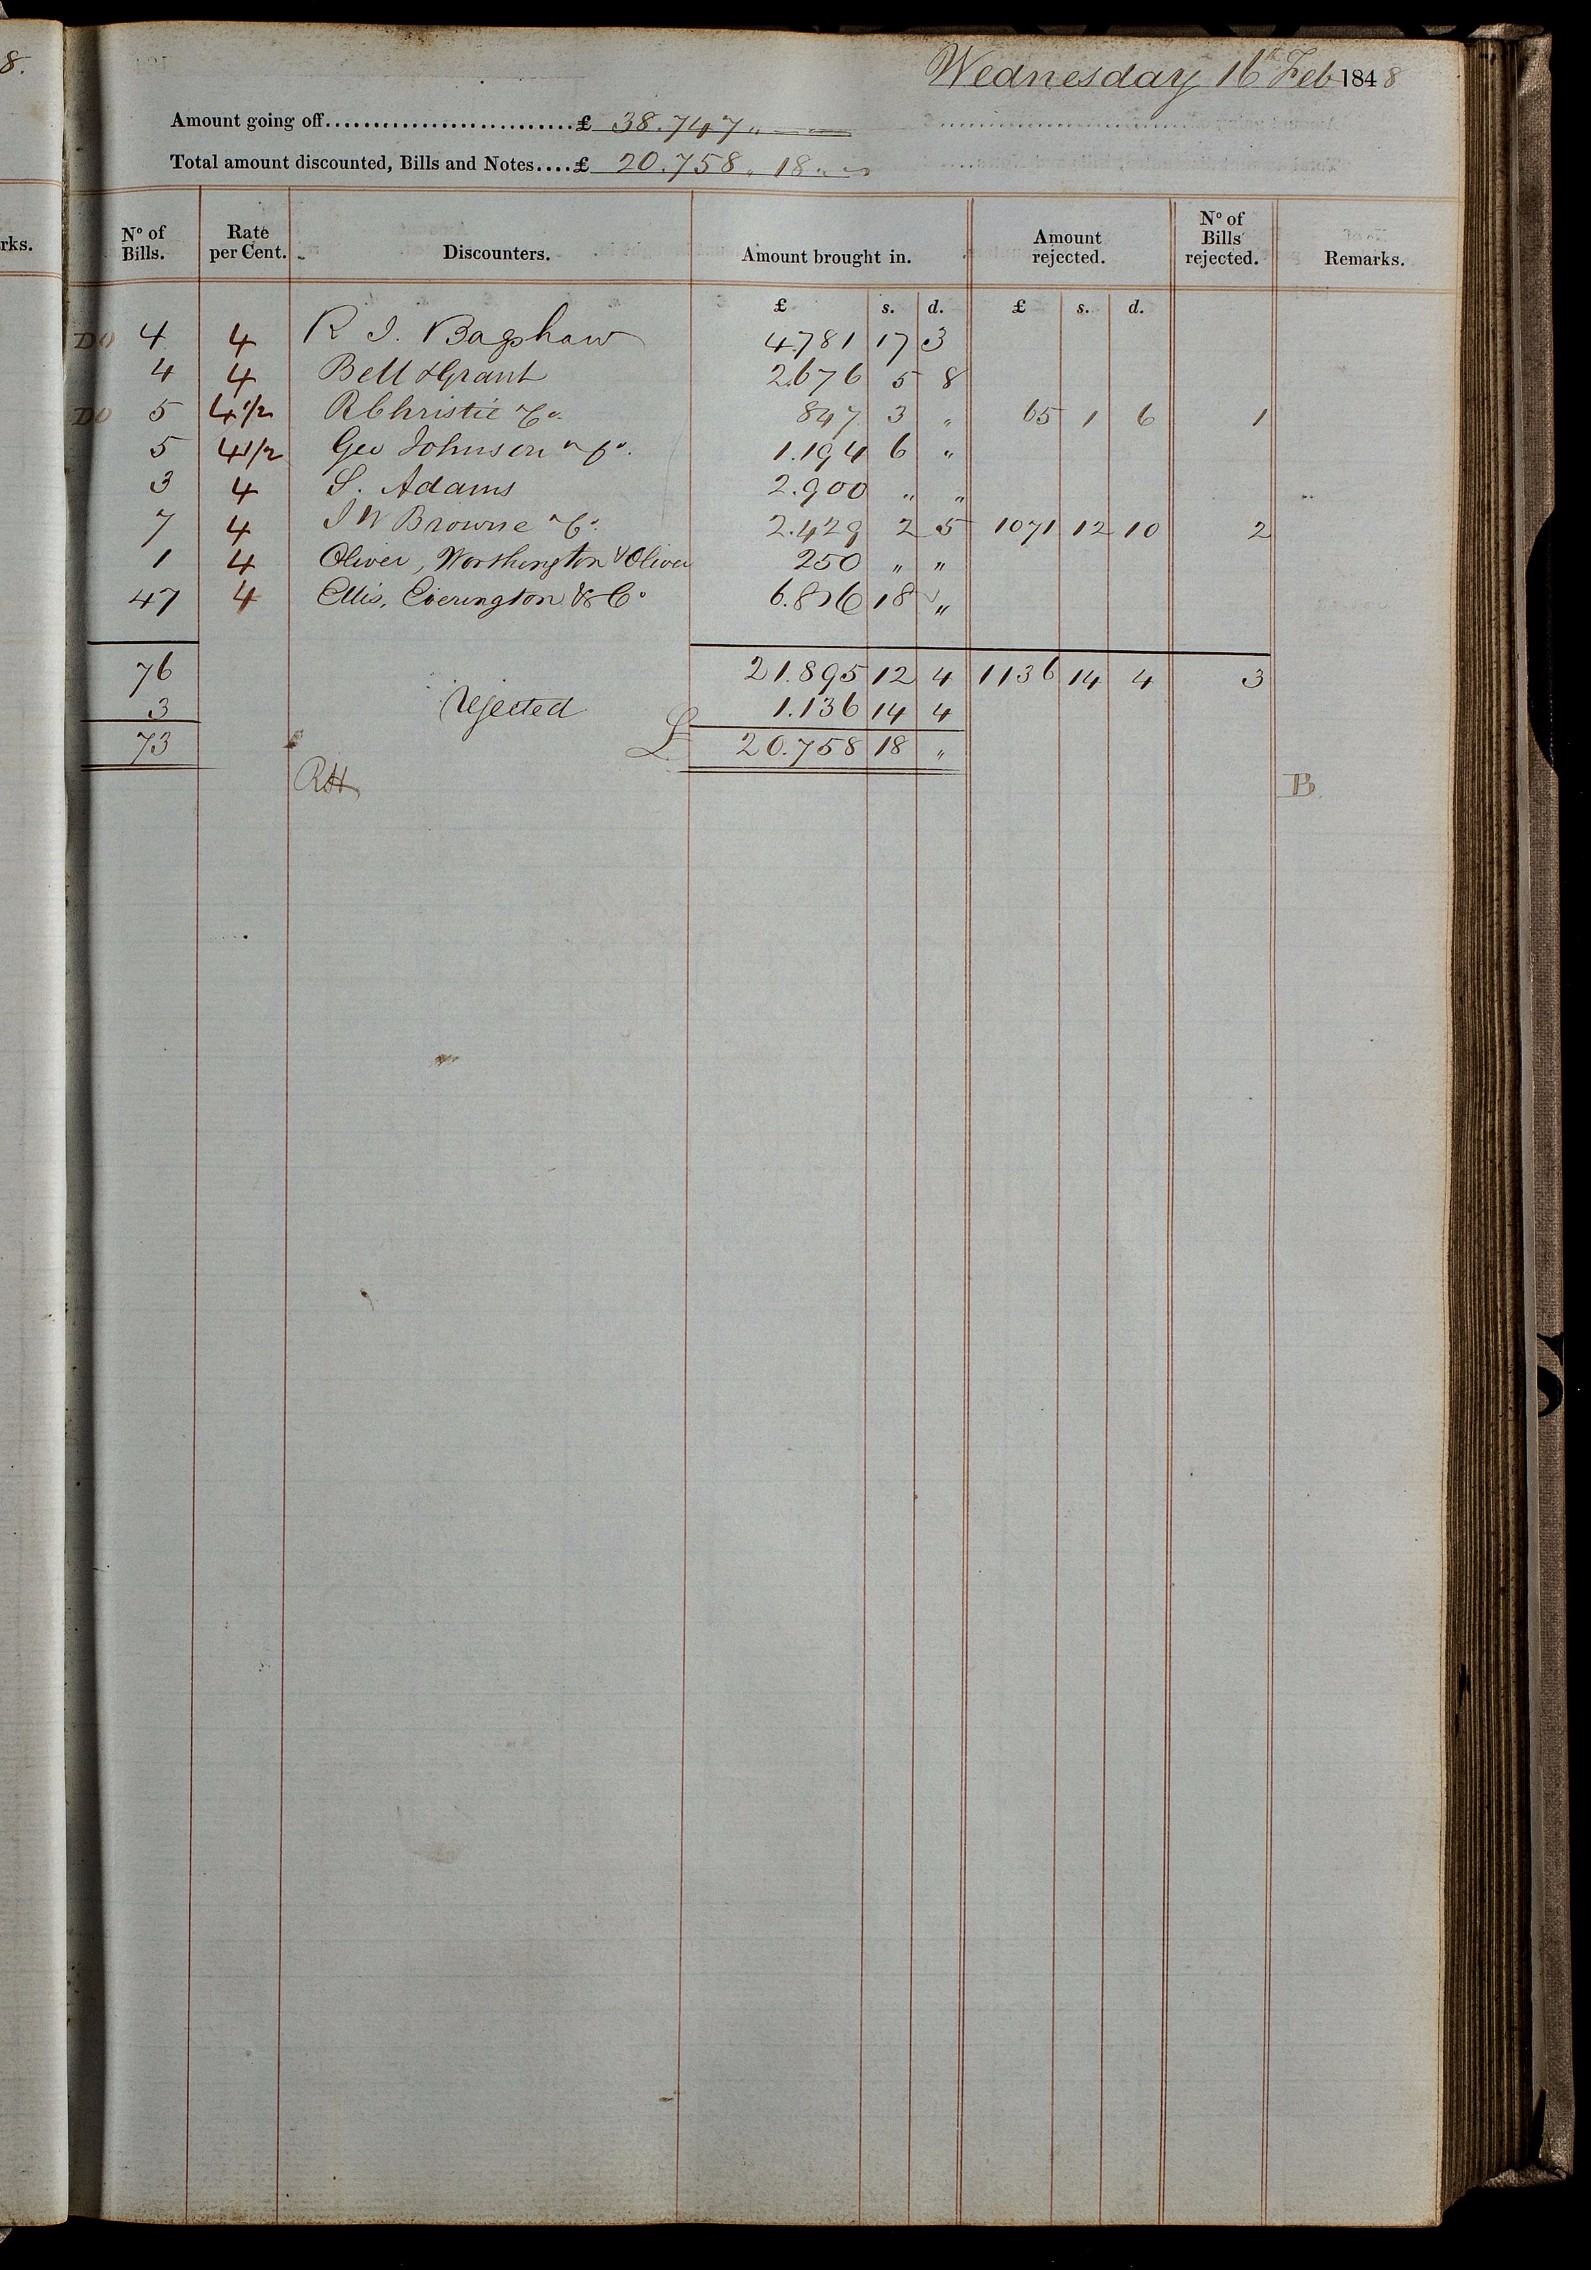 8.
Wednesday 16th Feb 1848
Amount going off...........................£ 38.747 "
Total amount discounted, Bills and Notes....£ 20.758 " 18 " "
rks.
No of Bills. Rate per Cent. Discounters. Amount brought in. Amount rejected. No of Bills rejected. Remarks.
£ s. d. £ s. d.
DO 4 4 R J. Bagshaw 4.781 17 3
4 4 Bell & Grant 2.676 5 8
DO 5 4 1/2 R Christie & Co. 847 3 " 65 1 6 1
5 4 1/2 Geo Johnson & Co. 1.194 6 "
3 4 S. Adams 2.900 " "
7 4 J W Browne & Co. 2.429 2 5 1071 12 10 2
1 4 Oliver, Worthington & Oliver 250 " "
47 4 Ellis, Everington & Co 6.816 18 "
76 21.895 12 4 1136 14 4 3
3 rejected 1.136 14 4
73 £ 20.758 18 "
RH B